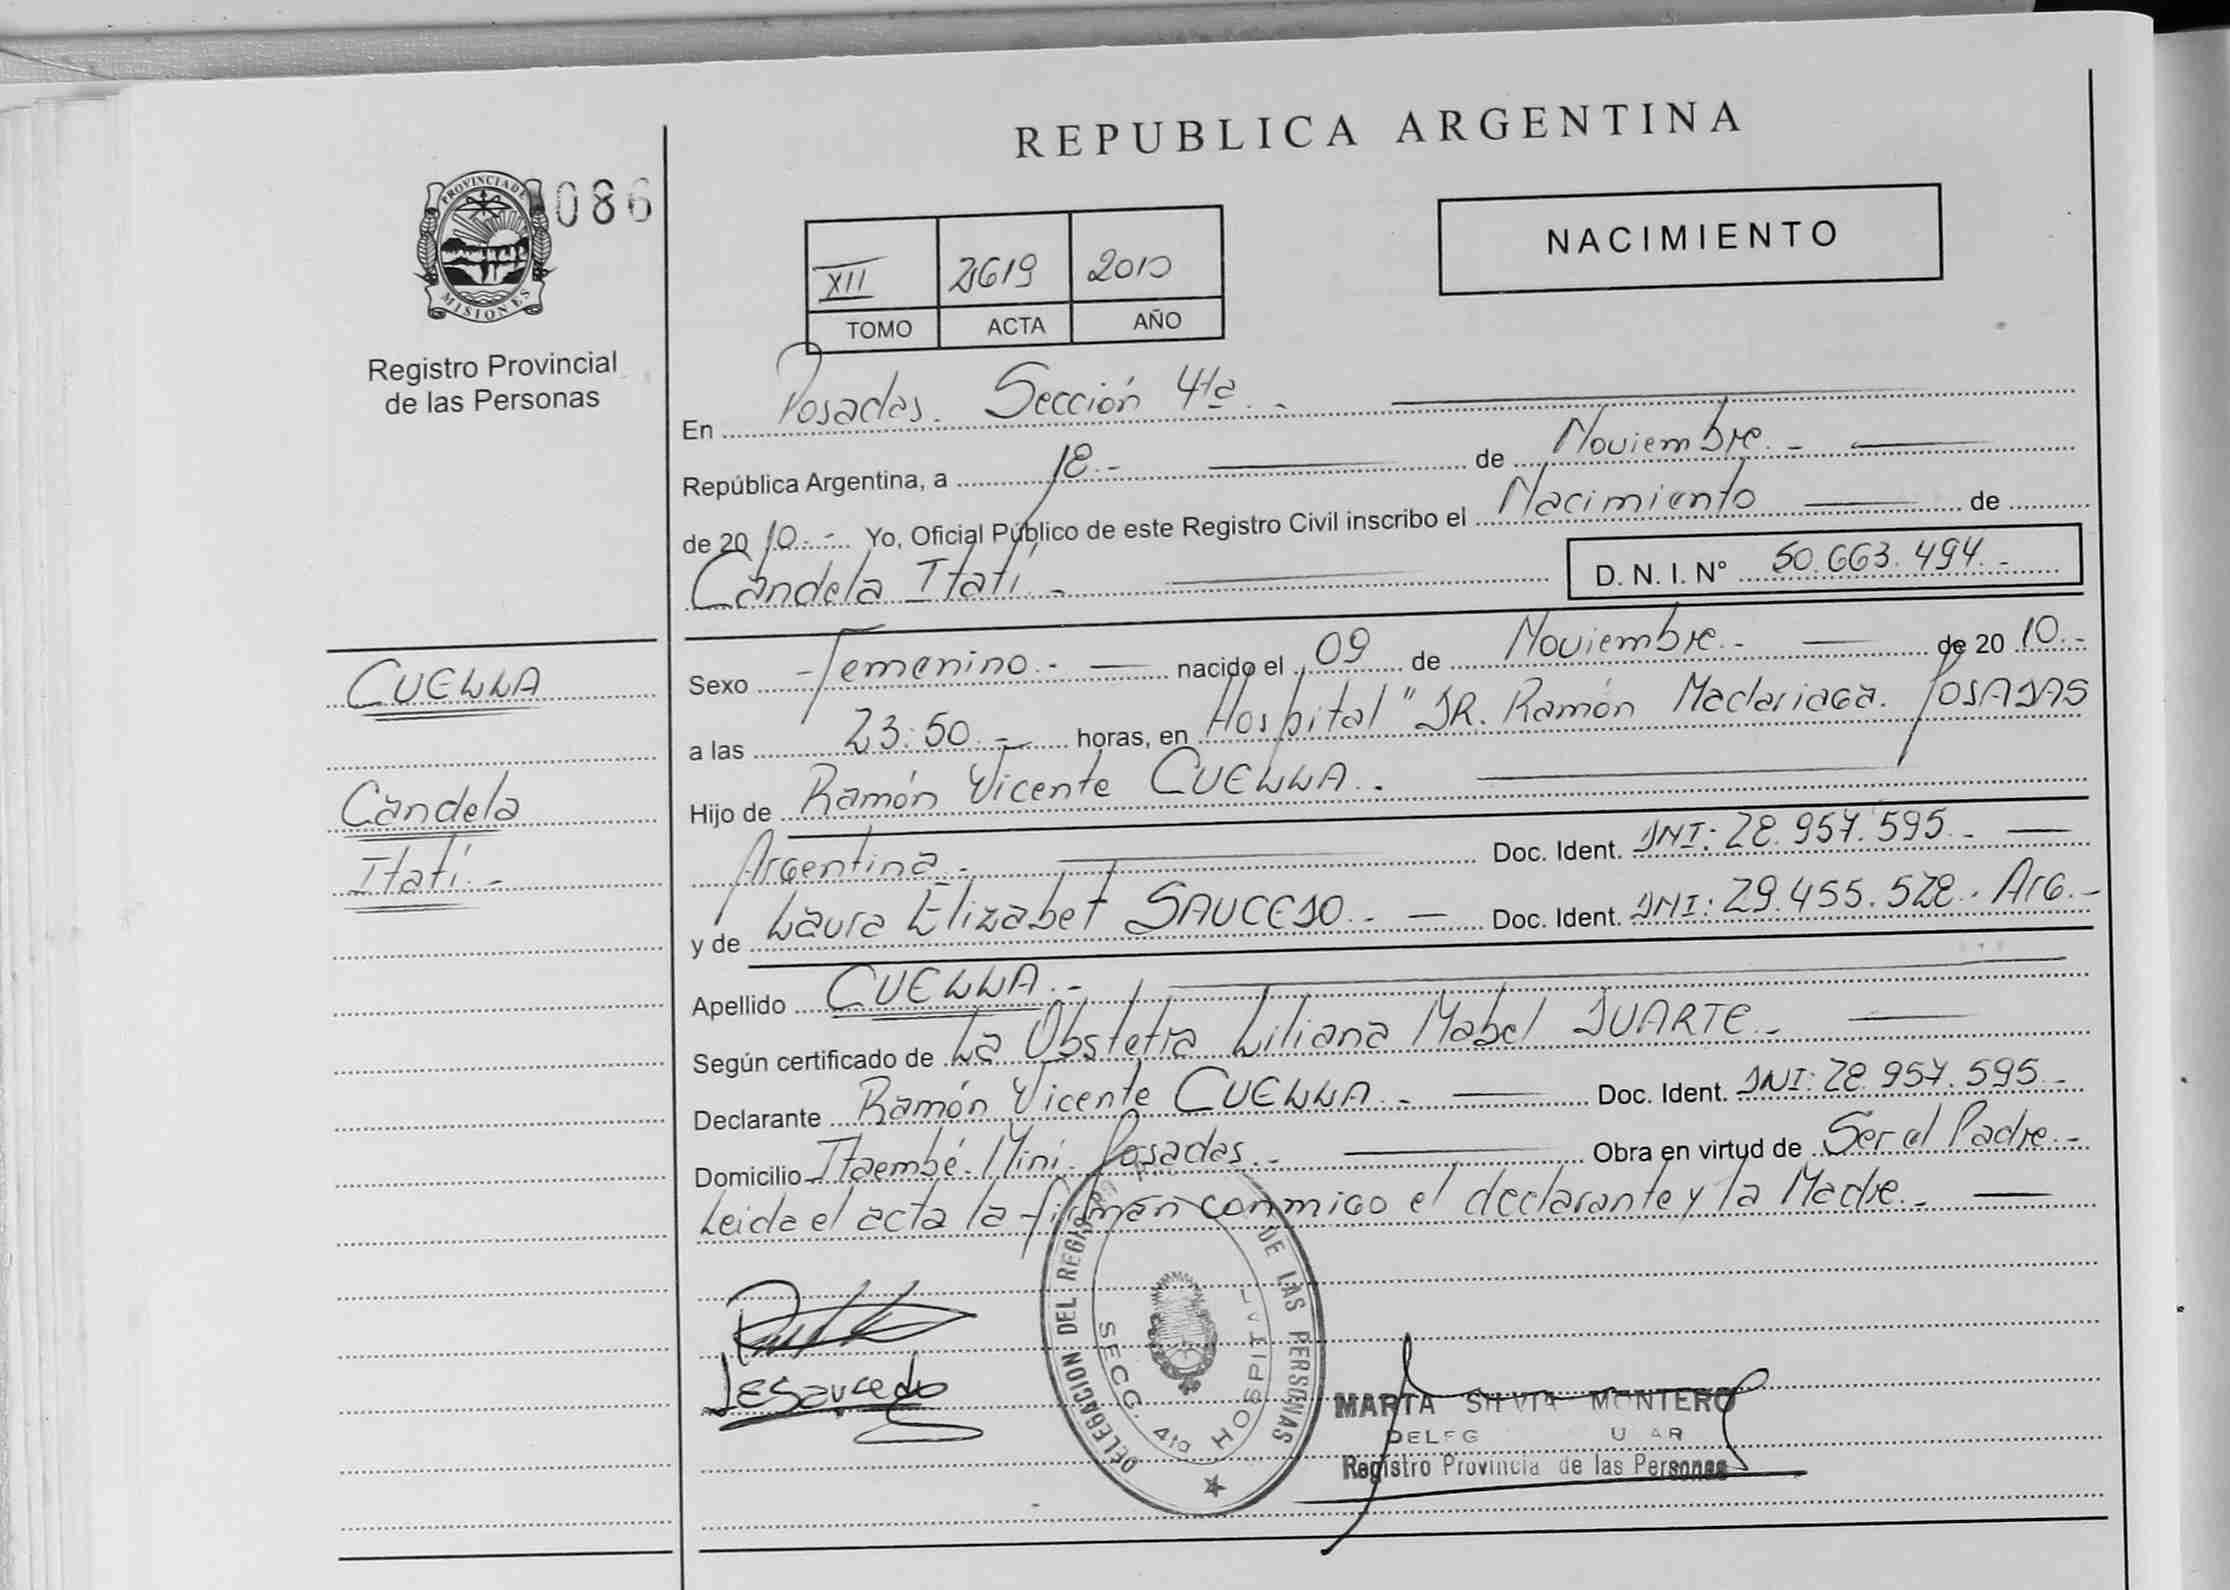 REPUBLICA ARGENTINA
PROVINCIA DE
MISIONES
086
Registro Provincial
de las Personas
XII 2619 2010
TOMO ACTA AÑO
NACIMIENTO
En Posadas. Sección 4ta.-
República Argentina, a 18.- de Noviembre.-
de 2010.- Yo, Oficial Público de este Registro Civil inscribo el Nacimiento de
Candela Itatí.- D. N. I. N° 50.663.494.-
CUELLA
Candela
Itatí.-
Sexo -Femenino.- nacido el 09 de Noviembre.- de 2010.-
a las 23:50.- horas, en Hospital "DR. Ramón Madariaga. POSADAS
Hijo de Ramón Vicente CUELLA.
Argentina.- Doc. Ident. DNI: 28.957.595.-
y de Laura Elizabet SAUCEDO.- Doc. Ident. DNI: 29.455.528. Arg.-
Apellido CUELLA.-
Según certificado de La Obstetra Liliana Mabel DUARTE.-
Declarante Ramón Vicente CUELLA.- Doc. Ident. DNI: 28.957.595.-
Domicilio Itaembé. Miní. Posadas.- Obra en virtud de Ser el Padre.-
Leida el acta la firman conmigo el declarante y la Madre.-
LESaucedo
DELEGACION DEL DE LAS PERSONAS
SECC. 4ta HOSPITAL
MARTA SILVIA MONTERO
Registro Provincia de las Personas